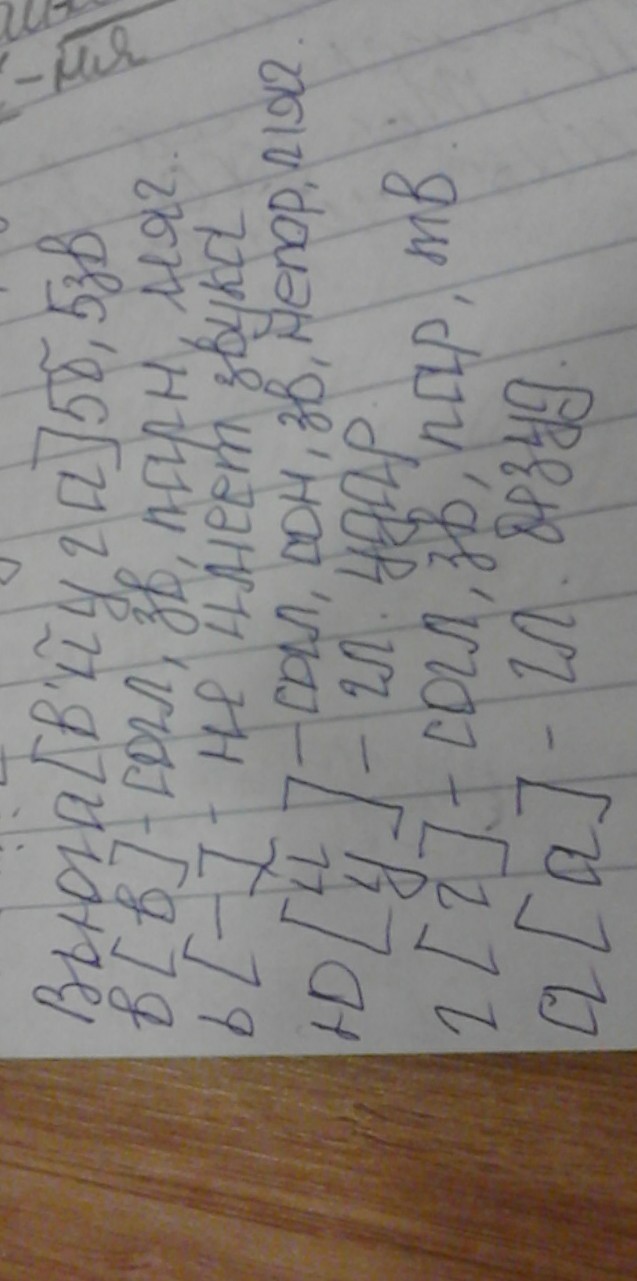 -ия
Вьюга [в'йуга] 5б, 5зв
в [в] - согл, зв, парн, мяг.
ь [-] - не имеет звука
ю [й - согл, сон, зв, непар, мяг.
у] - гл. удар
г [г] - согл, зв, пар, тв
а [а] - гл. безуд.